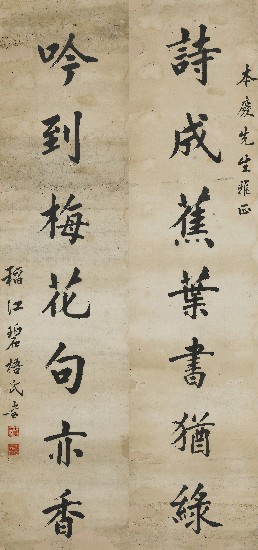 本慶先生雅正
詩成蕉葉書猶綠
吟到梅花句亦香
稻江碧梧氏書